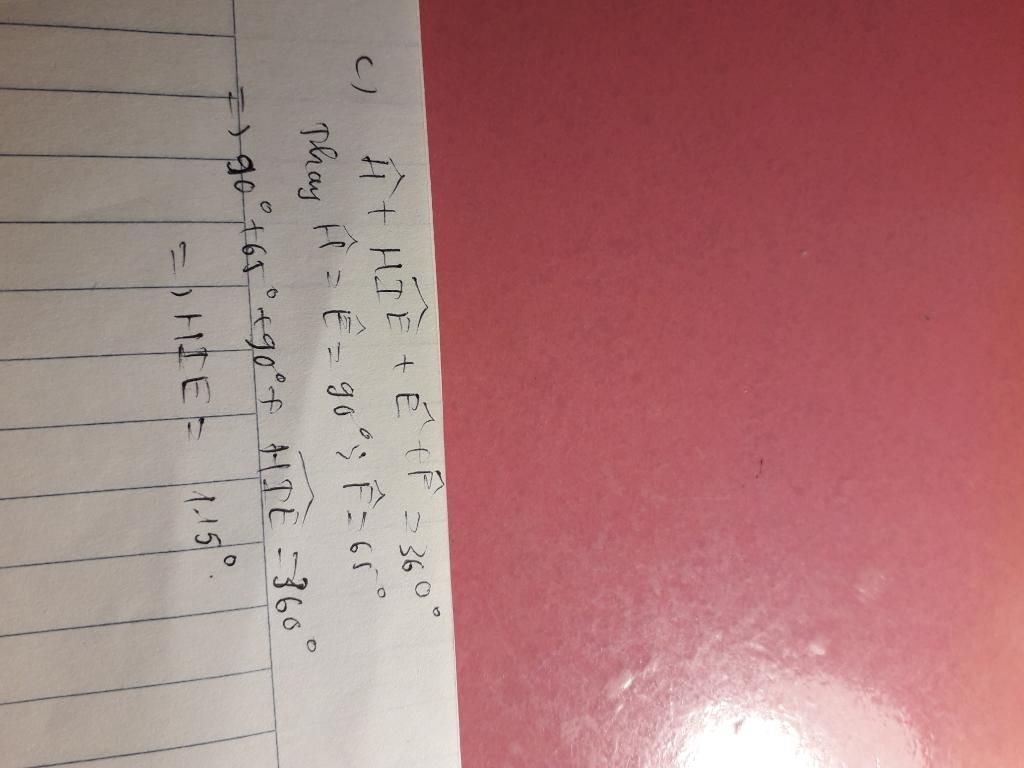 c) Ĥ + HIE + Ê + F̂ = 360°
Thay Ĥ = Ê = 90°; F̂ = 65°
=> 90° + 65° + 90° + HIE = 360°
=> HIE = 115°.